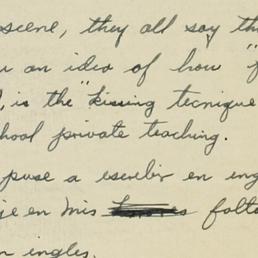 scene, they all say th
u an idea of how "f
, is the "kissing tecnique
hool private teaching.
puse a escribir en ing
je en mis falto
n ingles.